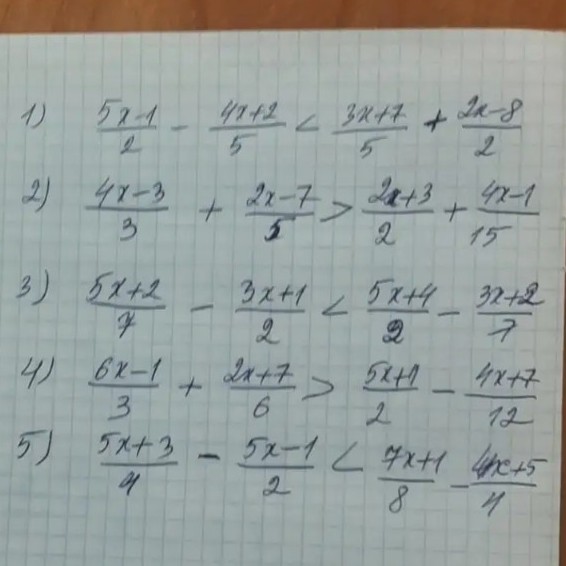 1) (5x-1)/2 - (4x+2)/5 < (3x+7)/5 + (2x-8)/2
2) (4x-3)/3 + (2x-7)/5 > (2x+3)/2 + (4x-1)/15
3) (5x+2)/7 - (3x+1)/2 < (5x+4)/2 - (3x+2)/7
4) (6x-1)/3 + (2x+7)/6 > (5x+1)/2 - (4x+7)/12
5) (5x+3)/4 - (5x-1)/2 < (7x+1)/8 - (4x+5)/4